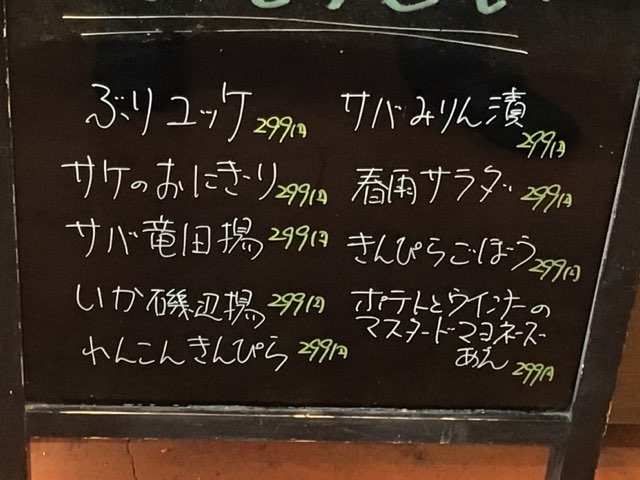 ぶりユッケ 299円
サケのおにぎり 299円
サバ竜田揚 299円
いか磯辺揚 299円
れんこんきんぴら 299円
サバみりん漬 299円
春雨サラダ 299円
きんぴらごぼう 299円
ポテトとウインナーの
マスタードマヨネーズ
あえ 299円